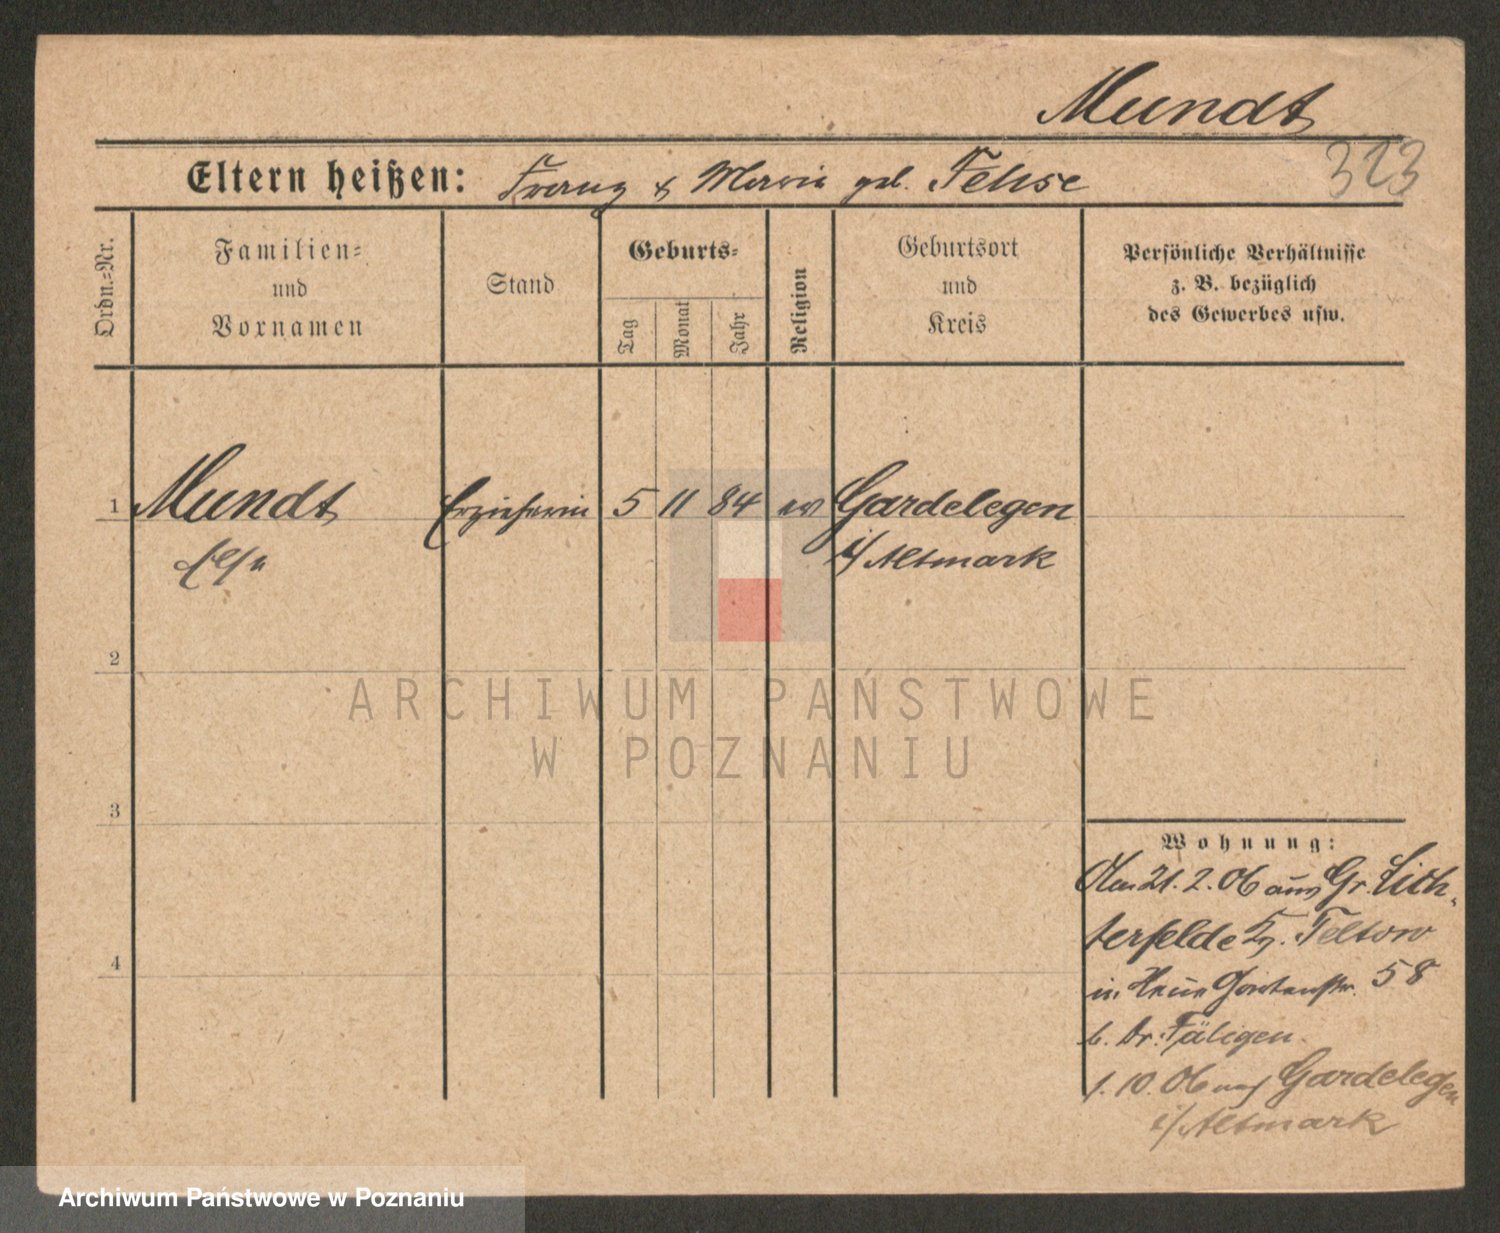 Mundt
323
Eltern heißen: Franz & Marie geb. Fehse
Ordn.=Nr.
Familien=
und
Vornamen
Stand
Geburts=
Tag
Monat
Jahr
Religion
Geburtsort
und
Kreis
Persönliche Verhältnisse
z. B. bezüglich
des Gewerbes usw.
1 Mundt Erzieherin 5 11 84 ev Gardelegen
i/Altmark
2
3
4
Wohnung:
21.2.06 aus Gr. Lich-
terfelde Kr. Teltow
in Neue Gartenstr. 58
b. Dr.
1.10.06 nach Gardelegen
i/Altmark
ARCHIWUM PAŃSTWOWE
W POZNANIU
Archiwum Państwowe w Poznaniu